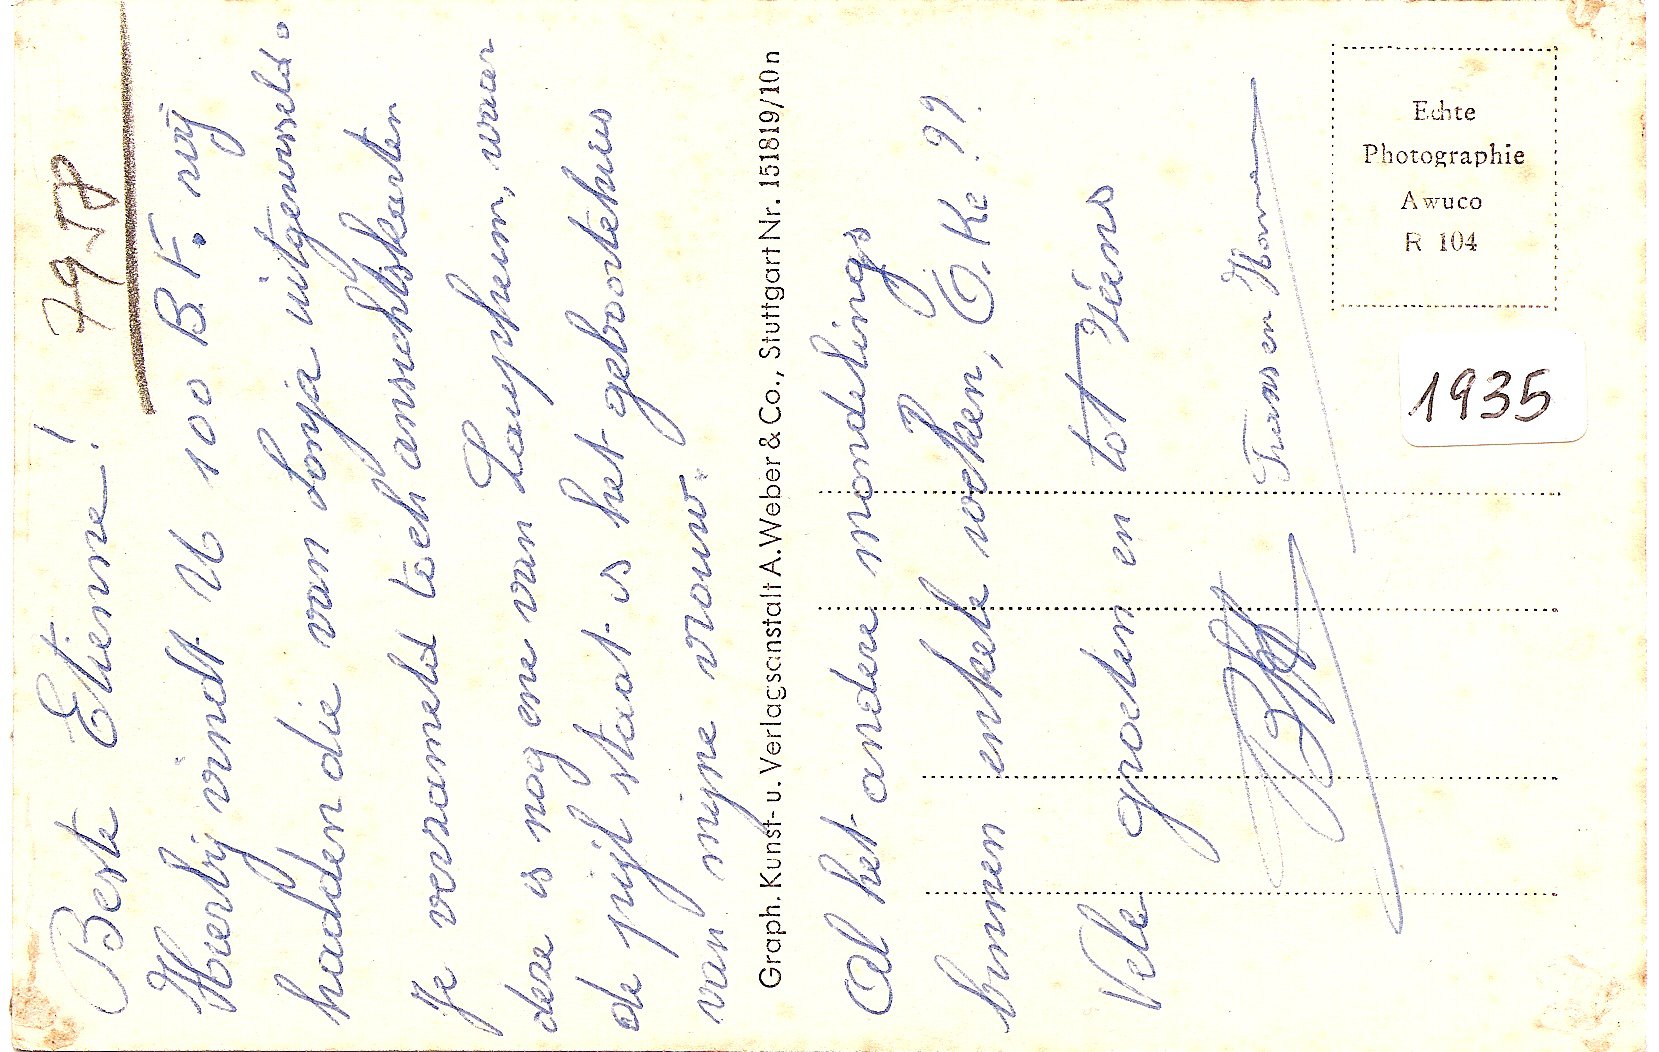 7958
Beste Etienne!
Hierbij vindt U 100 B.F. wij
hadden die van Sonja uitgewisseld.
Je verzameld toch ansichtskarten
deze is nog ene van Laupheim, waar
de pijl staat is het geboortehuis
van mijne vrouw.
Graph. Kunst- u. Verlagsanstalt A. Weber & Co., Stuttgart Nr. 151819/10n
Al het andere mondelings
binnen enkele weken, O.Ke. ??
Vele groeten en tot Ziens
Frans en
Echte
Photographie
Awuco
R 104
1935